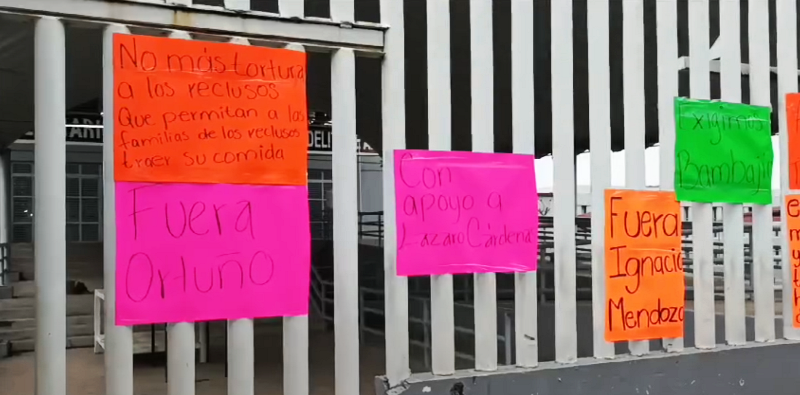 No más tortura
a los reclusos
Que permitan a las
familias de los reclusos
traer su comida
Fuera
Ortuño
Con
apoyo a
Lazaro Cárdena
Exigimos
Bambaji
Fuera
Ignacio
Mendoza